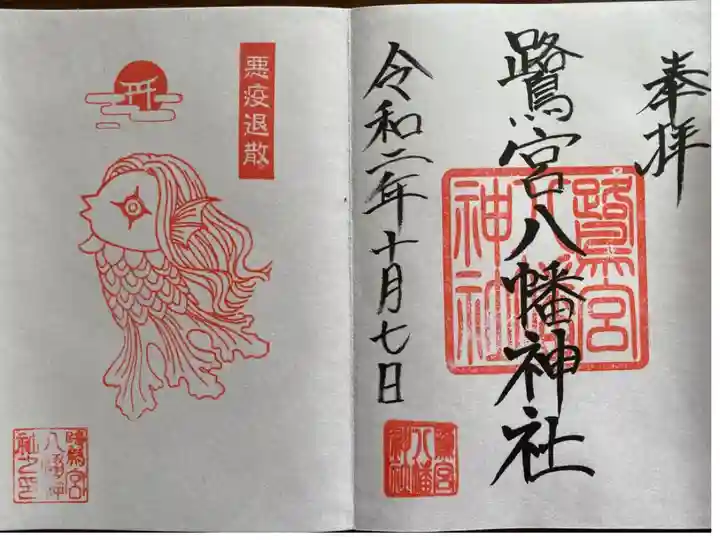 奉拝
鷺宮八幡神社
鷺宮八幡神社
令和二年十月七日
鷺宮八幡神社
悪疫退散
鷺宮八幡神社之印